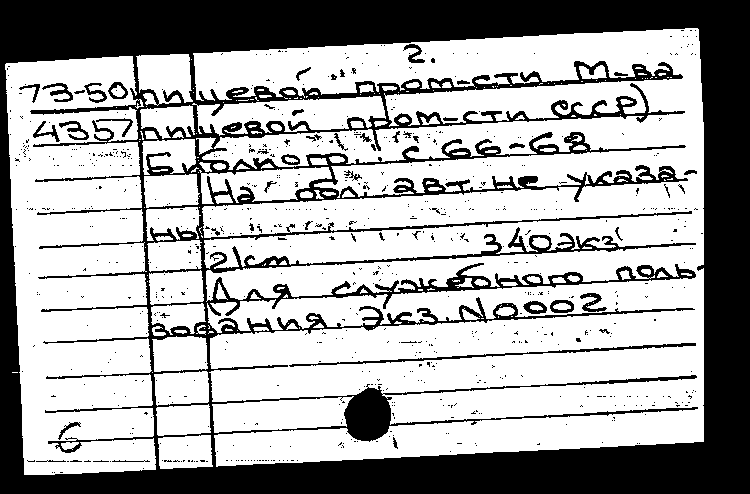 2.
73-50 пищевой пром-сти М-ва
4357 пищевой пром-сти СССР).
Библиогр.: с. 66-68.
На обл. авт. не указа-
ны
21 см. 340 экз.
Для служебного поль-
зования. Экз. N 0002
6